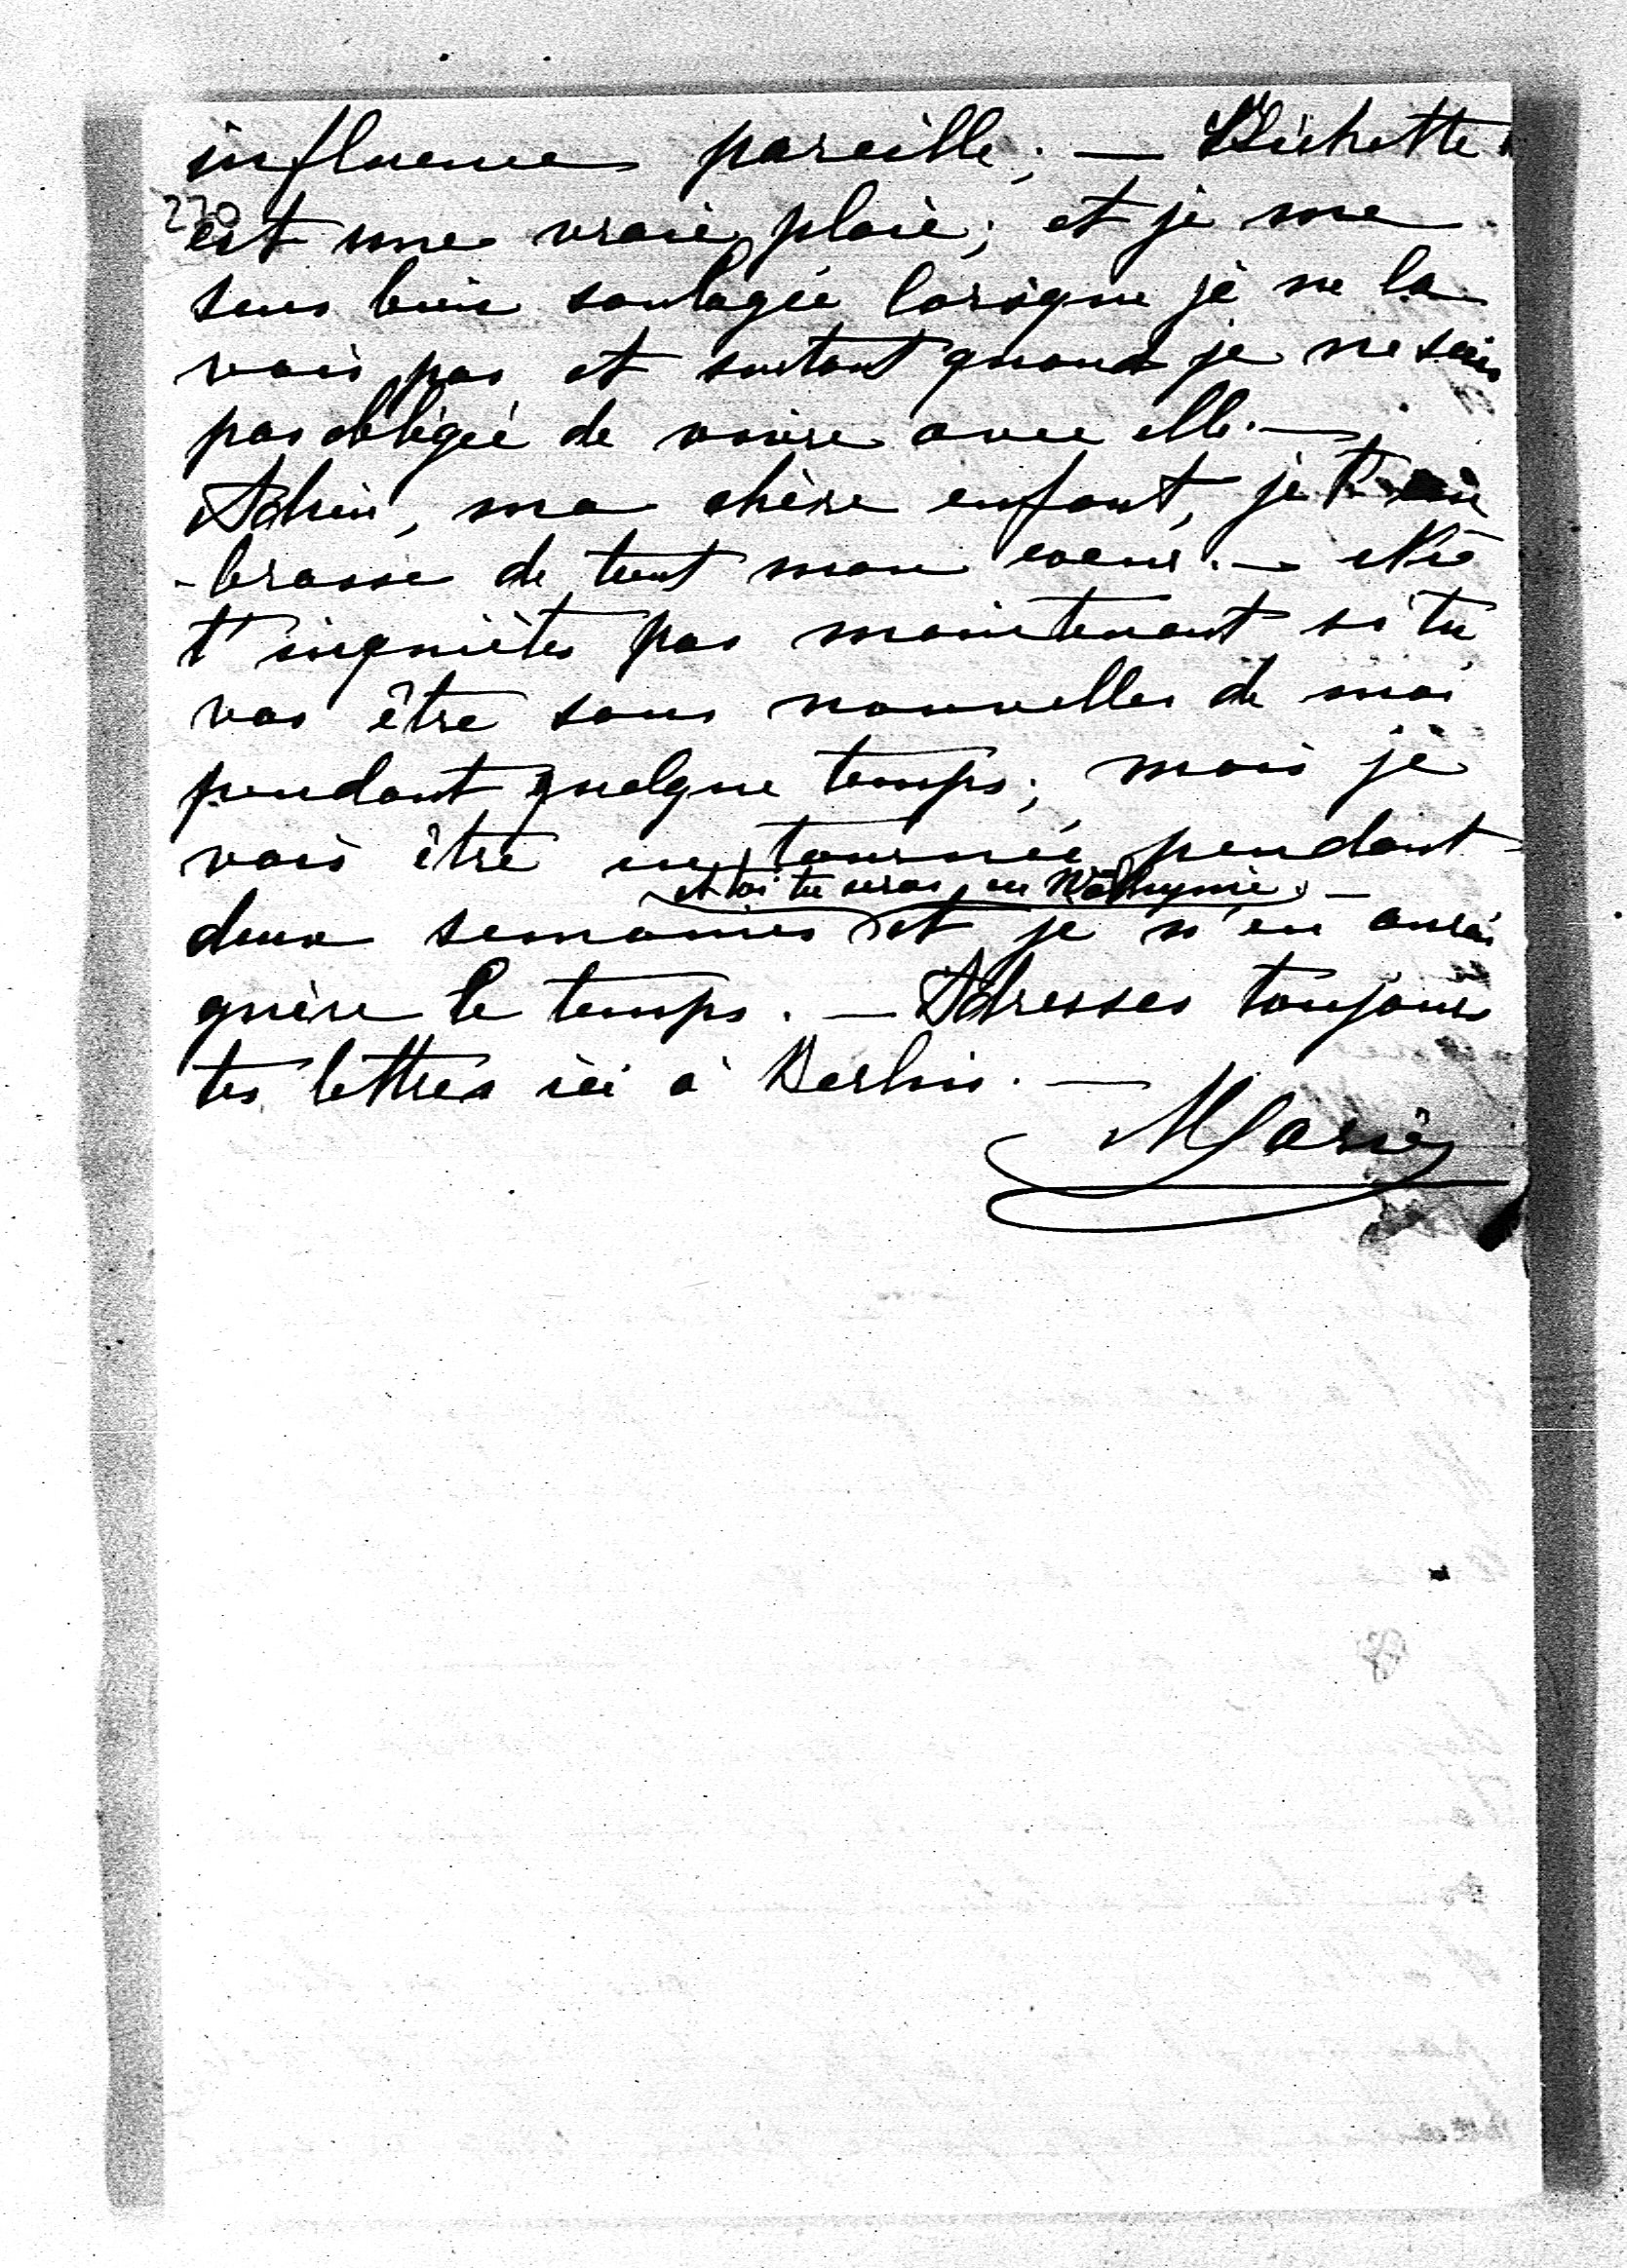 influence pareille; — Bichette
270
est une vraie plaie; et je me
sens bien soulagée lorsque je ne la
vois pas et surtout quand je ne suis
pas obligée de vivre avec elle. —
Adieu, ma chère enfant, je t'em
-brasse de tout mon coeur. — Ne
t'inquiètes pas maintenant si tu
vas être sans nouvelles de moi
pendant quelque temps; mais je
vais être en tournée pendant
et toi tu seras en Wolhynie. —
deux semaines et je n'en aurai
guère le temps. — Adresses toujours
tes lettres ici à Berlin. —
Marie